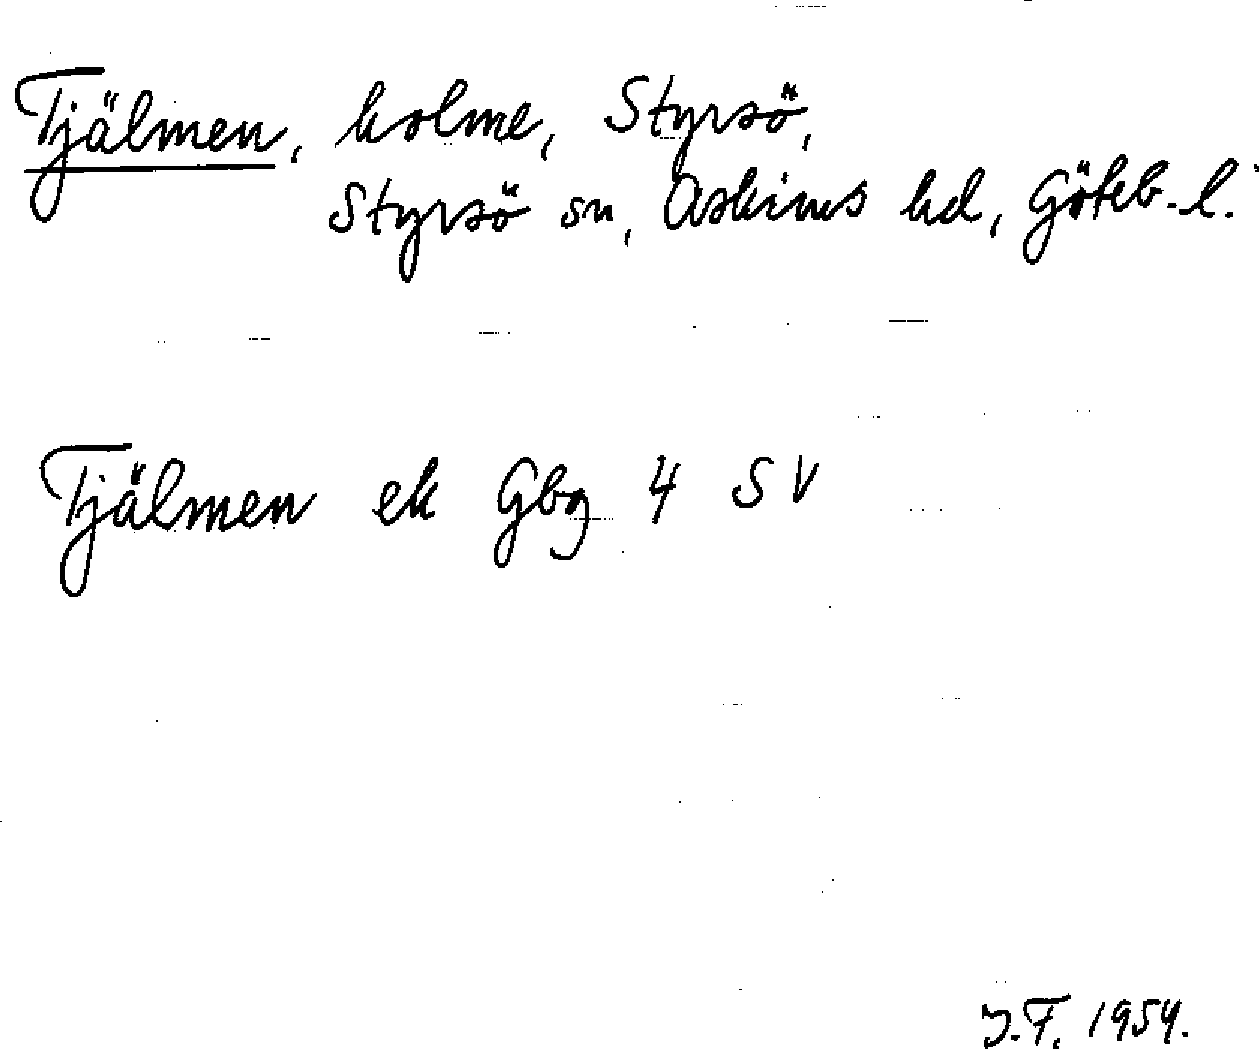 Tjälmen, holme, Styrsö,
Styrsö sn, Askims hd, Göteb. l.
Tjälmen ek Gbg 4 SV
J.F. 1954.